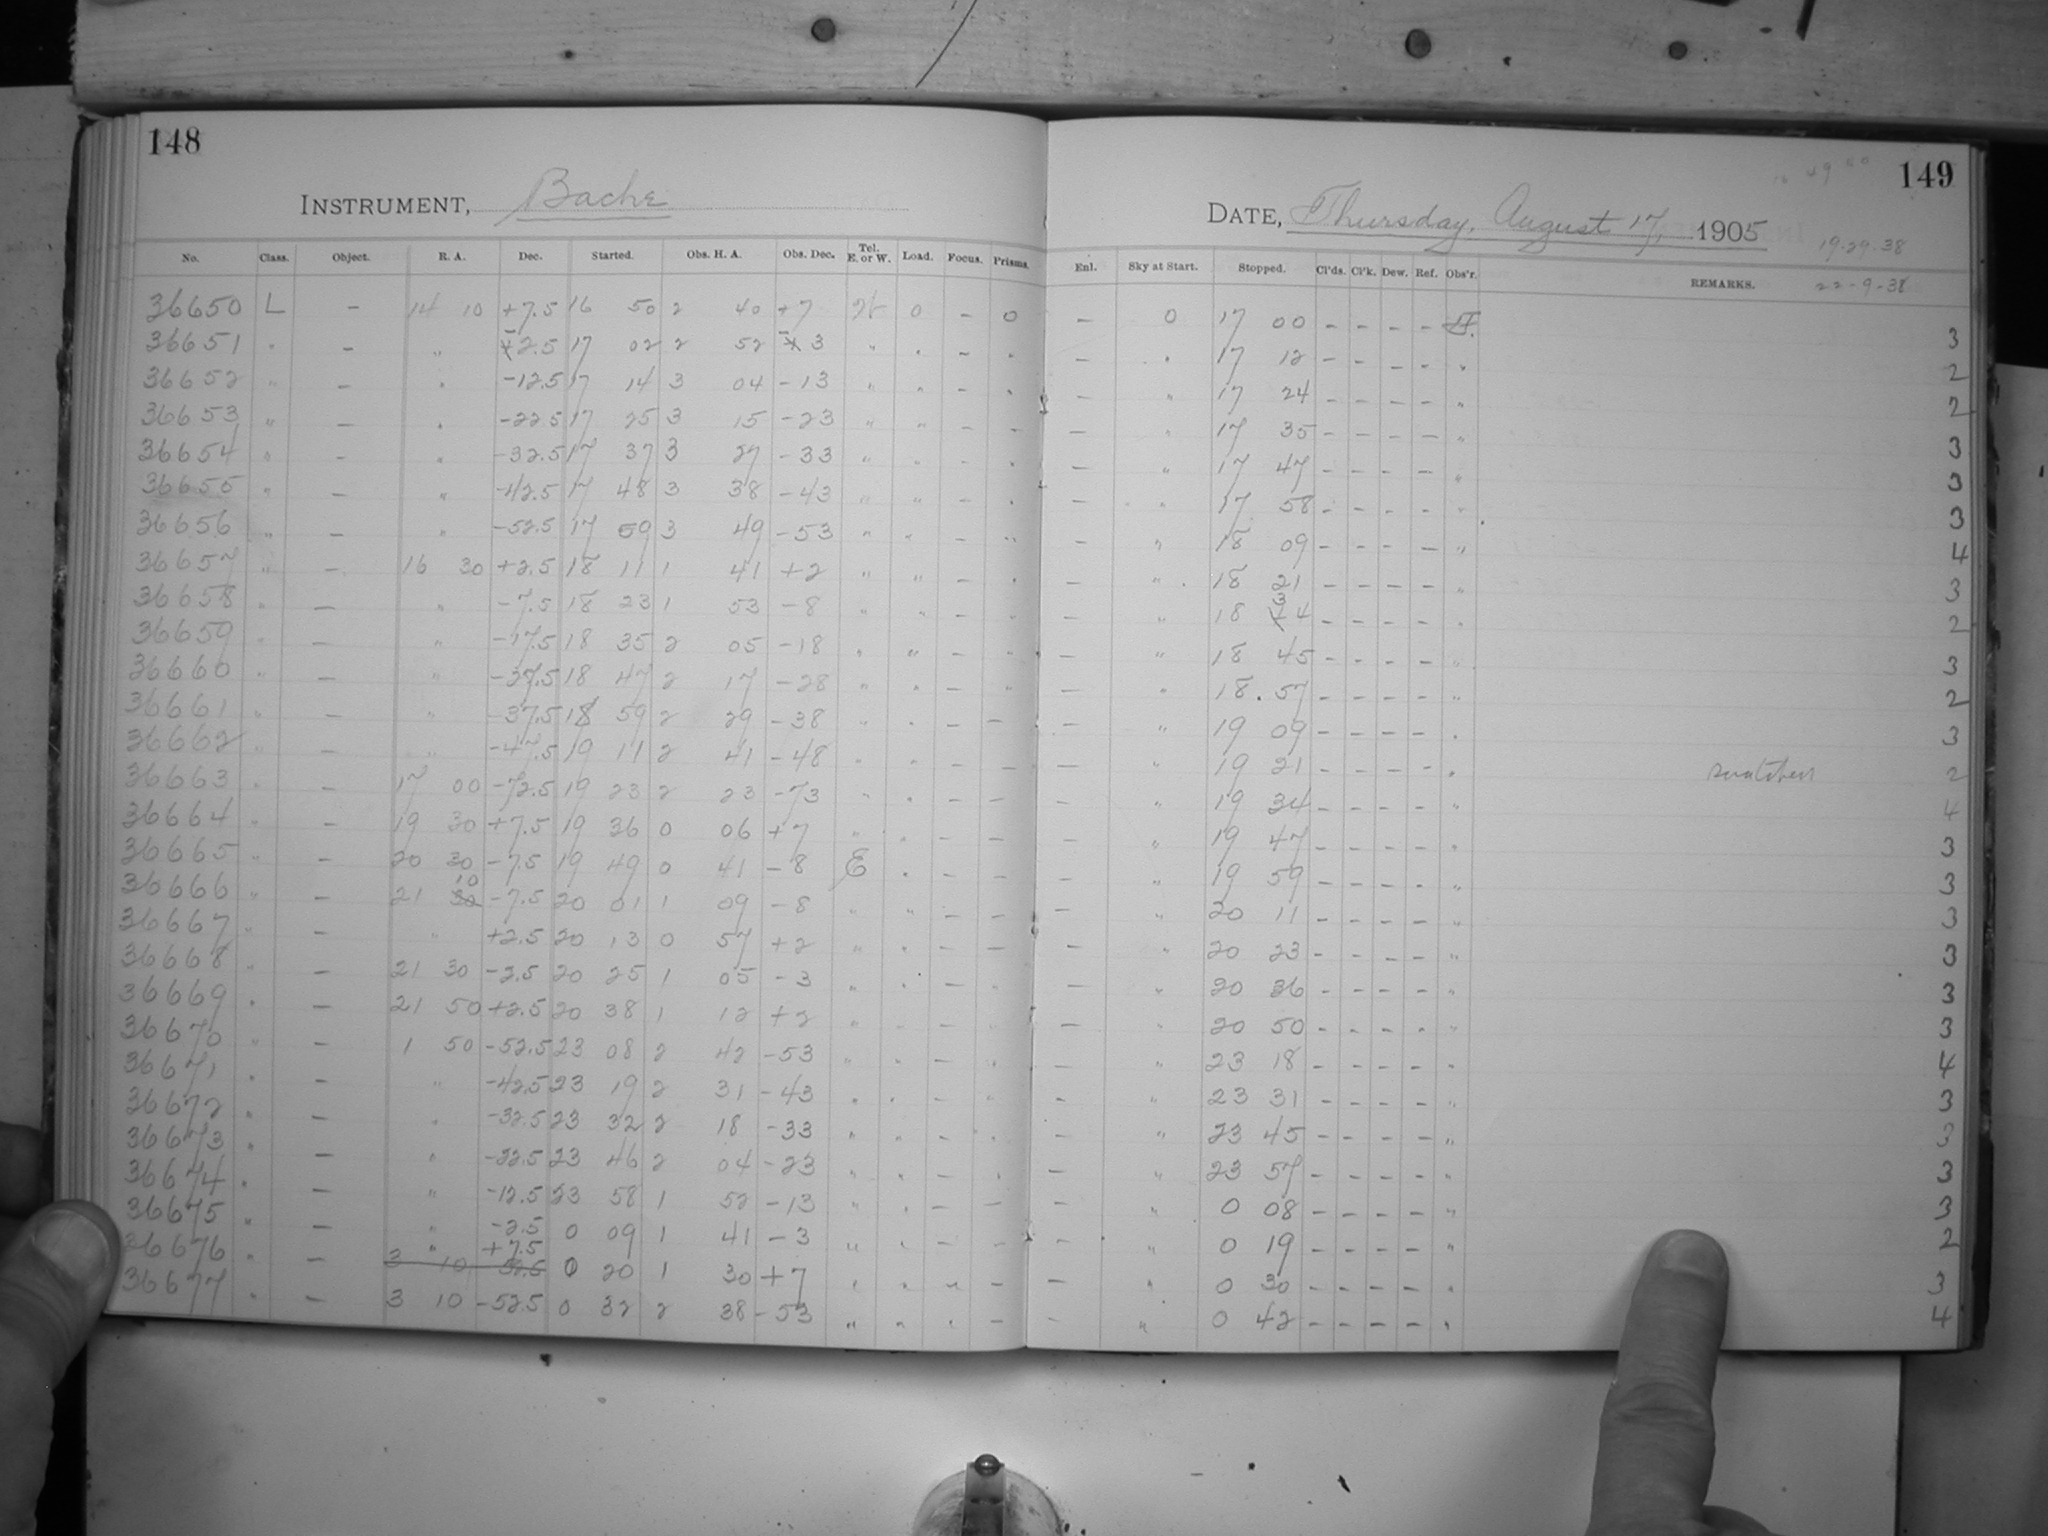 148
INSTRUMENT, Bache
No. Class. Object. R. A. Dec. Started. Obs. H. A. Obs. Dec. Tel. E. or W. Load. Focus. Prisms.
36650 L – 14 10 +7.5 16 50 2 40 +7 W 0 – 0
36651 " – " -2.5 17 02 2 52 -3 " " – "
36652 " – " -12.5 17 14 3 04 -13 " " – "
36653 " – " -22.5 17 25 3 15 -23 " " – –
36654 " – " -32.5 17 37 3 27 -33 " " – "
36655 " – " -42.5 17 48 3 38 -43 " " – "
36656 " – " -52.5 17 59 3 49 -53 " " – "
36657 " – 16 30 +2.5 18 11 1 41 +2 " " – "
36658 " – " -7.5 18 23 1 53 -8 " " – "
36659 " – " -17.5 18 35 2 05 -18 " " – "
36660 " – " -27.5 18 47 2 17 -28 " " – "
36661 " – " -37.5 18 59 2 29 -38 " " – –
36662 " – " -47.5 19 11 2 41 -48 " " – –
36663 " – 17 00 -72.5 19 23 2 23 -73 " " – –
36664 " – 19 30 +7.5 19 36 0 06 +7 " " – –
36665 " – 20 30 -7.5 19 49 0 41 -8 E " – –
36666 " – 21 10 -7.5 20 01 1 09 -8 " " – –
36667 " – " +2.5 20 13 0 57 +2 " " – –
36668 " – 21 30 -2.5 20 25 1 05 -3 " " – "
36669 " – 21 50 +2.5 20 38 1 12 +2 " " – "
36670 " – 1 50 -52.5 23 08 2 42 -53 " " – "
36671 " – " -42.5 23 19 2 31 -43 " " – "
36672 " – " -32.5 23 32 2 18 -33 " " – "
36673 " – " -22.5 23 46 2 04 -23 " " – –
36674 " – " -12.5 23 58 1 52 -13 " " – –
36675 " – " -2.5 0 09 1 41 -3 " " – –
36676 " – " +7.5 0 20 1 30 +7 " " " –
36677 " – 3 10 -52.5 0 32 2 38 -53 " " " –
149
DATE, Thursday, August 17, 1905
19-29-38
22-9-38
Enl. Sky at Start. Stopped. Cl'ds. Cl'k. Dew. Ref. Obs'r. REMARKS.
– 0 17 00 – – – – 3
– " 17 12 – – – – " 2
– " 17 24 – – – – " 2
– " 17 35 – – – – " 3
– " 17 47 – – – – " 3
– " 17 58 – – – – " 3
– " 18 09 – – – – " 4
– " 18 21 – – – – " 3
– " 18 34 – – – – " 2
– " 18 45 – – – – " 3
– " 18 57 – – – – " 2
– " 19 09 – – – – " 3
– " 19 21 – – – – " 2
– " 19 34 – – – – " 4
– " 19 47 – – – – " 3
– " 19 59 – – – – " 3
– " 20 11 – – – – " 3
– " 20 23 – – – – " 3
– " 20 36 – – – – " 3
– " 20 50 – – – – " 3
– " 23 18 – – – – " 4
– " 23 31 – – – – " 3
– " 23 45 – – – – " 3
– " 23 57 – – – – " 3
– " 0 08 – – – – " 3
– " 0 19 – – – – " 2
– " 0 30 – – – – " 3
– " 0 42 – – – – " 4